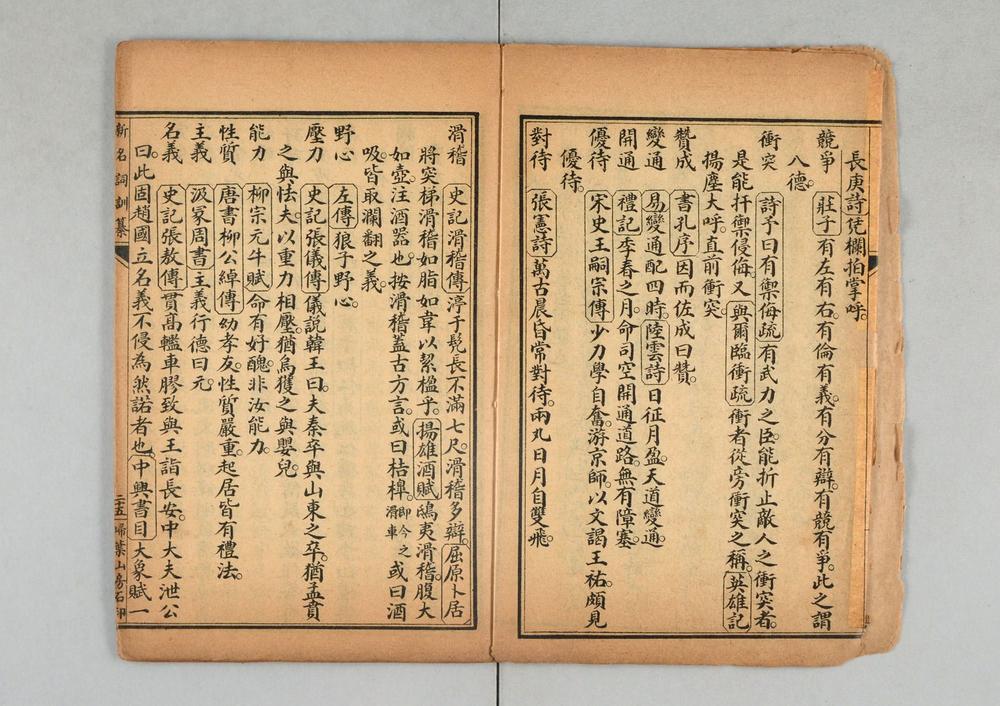 長庚詩凭欄拍掌呼
競爭 莊子有左有右。有倫有義。有分有辯。有競有爭。此之謂
八德。
衝突 詩予曰有禦侮疏有武力之臣。能折止敵人之衝突者。
是能扞禦侵侮。又與爾臨衝疏衝者從旁衝突之稱。英雄記
揚塵大呼。直前衝突。
贊成 書孔序因而佐成曰贊。
變通 易變通配四時。陸雲詩日征月盈。天道變通。
開通 禮記季春之月。命司空開通道路。無有障塞。
優待 宋史王嗣宗傳少力學自奮。游京師。以文謁王祐。頗見
優待。
對待 張憲詩萬古晨昏常對待。兩丸日月自雙飛。
滑稽 史記滑稽傳淳于髡長不滿七尺。滑稽多辯。屈原卜居
將突梯滑稽如脂如韋以絜楹乎。揚雄酒賦鴟夷滑稽。腹大
如壺。注酒器也。按滑稽蓋古方言。或曰桔槔。即今之滑車或曰酒
吸。皆取瀾翻之義。
野心 左傳狼子野心。
壓力 史記張儀傳儀說韓王曰。夫秦卒與山東之卒。猶孟賁
之與怯夫。以重力相壓。猶烏獲之與嬰兒。
能力 柳宗元牛賦命有好醜。非汝能力。
性質 唐書柳公綽傳幼孝友。性質嚴重。起居皆有禮法。
主義 汲冢周書主義行德曰元。
名義 史記張敖傳貫高轞車膠致與王詣長安。中大夫泄公
曰。此固趙國立名義不侵為然諾者也。中興書目大象賦一
新名詞訓纂
二十五 掃葉山房石印